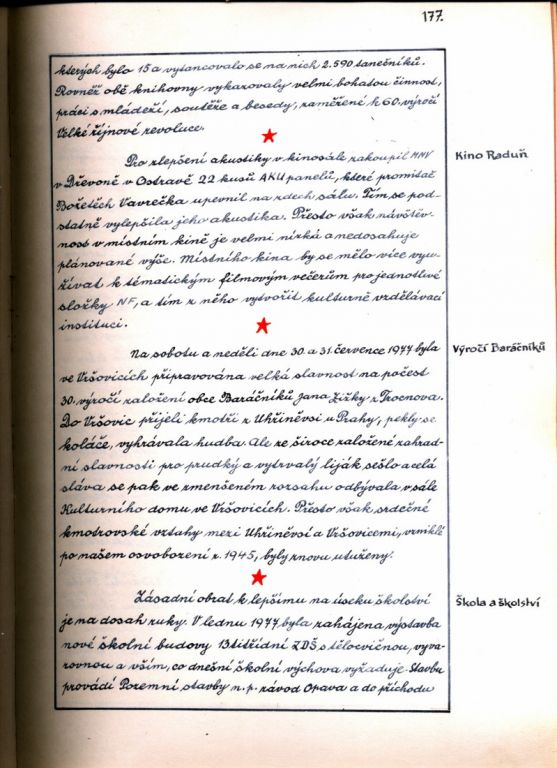 177.
kterých bylo 15 a vytancovalo se na nich 2.590 tanečníků.
Rovněž obě knihovny vykazovaly velmi bohatou činnost,
práci s mládeží, soutěže a besedy, zaměřené k 60. výročí
Velké říjnové revoluce.
Kino Raduň
Pro zlepšení akustiky v kinosále zakoupil MNV
v Dřevoně v Ostravě 22 kusů AKU panelů, které promítač
Božetěch Vavrečka upevnil na zdech sálu. Tím se pod-
statně vylepšila jeho akustika. Přesto však návštěv-
nost v místním kině je velmi nízká a nedosahuje
plánované výše. Místního kina by se mělo více využ-
žívat k tématickým filmovým večerům pro jednotlivé
složky NF, a tím z něho vytvořit kulturně vzdělávací
instituci.
Výročí Baráčníků
Na sobotu a neděli dne 30. a 31. července 1977 byla
ve Vršovicích připravována velká slavnost na počest
30. výročí založení obce Baráčníků Jana Žižky z Trocnova.
Do Vršovic přijeli kmotři z Uhříněvsi u Prahy, pekly se
koláče, vyhrávala hudba. Ale ze široce založené zahrad-
ní slavnosti pro prudký a vytrvalý liják sešlo a celá
sláva se pak ve zmenšeném rozsahu odbývala v sále
Kulturního domu ve Vršovicích. Přesto však, srdečné
kmotrovské vztahy mezi Uhříněvsí a Vršovicemi, vzniklé
po našem osvobození r. 1945, byly znovu utuženy.
Škola a školství
Zásadní obrat k lepšímu na úseku školství
je na dosah ruky. V lednu 1977 byla zahájena výstavba
nové školní budovy 13titřídní ZDŠ s tělocvičnou, vyva-
rovnou a vším, co dnešní školní výchova vyžaduje. Stavbu
provádí Pozemní stavby n.p. závod Opava a do příchodu